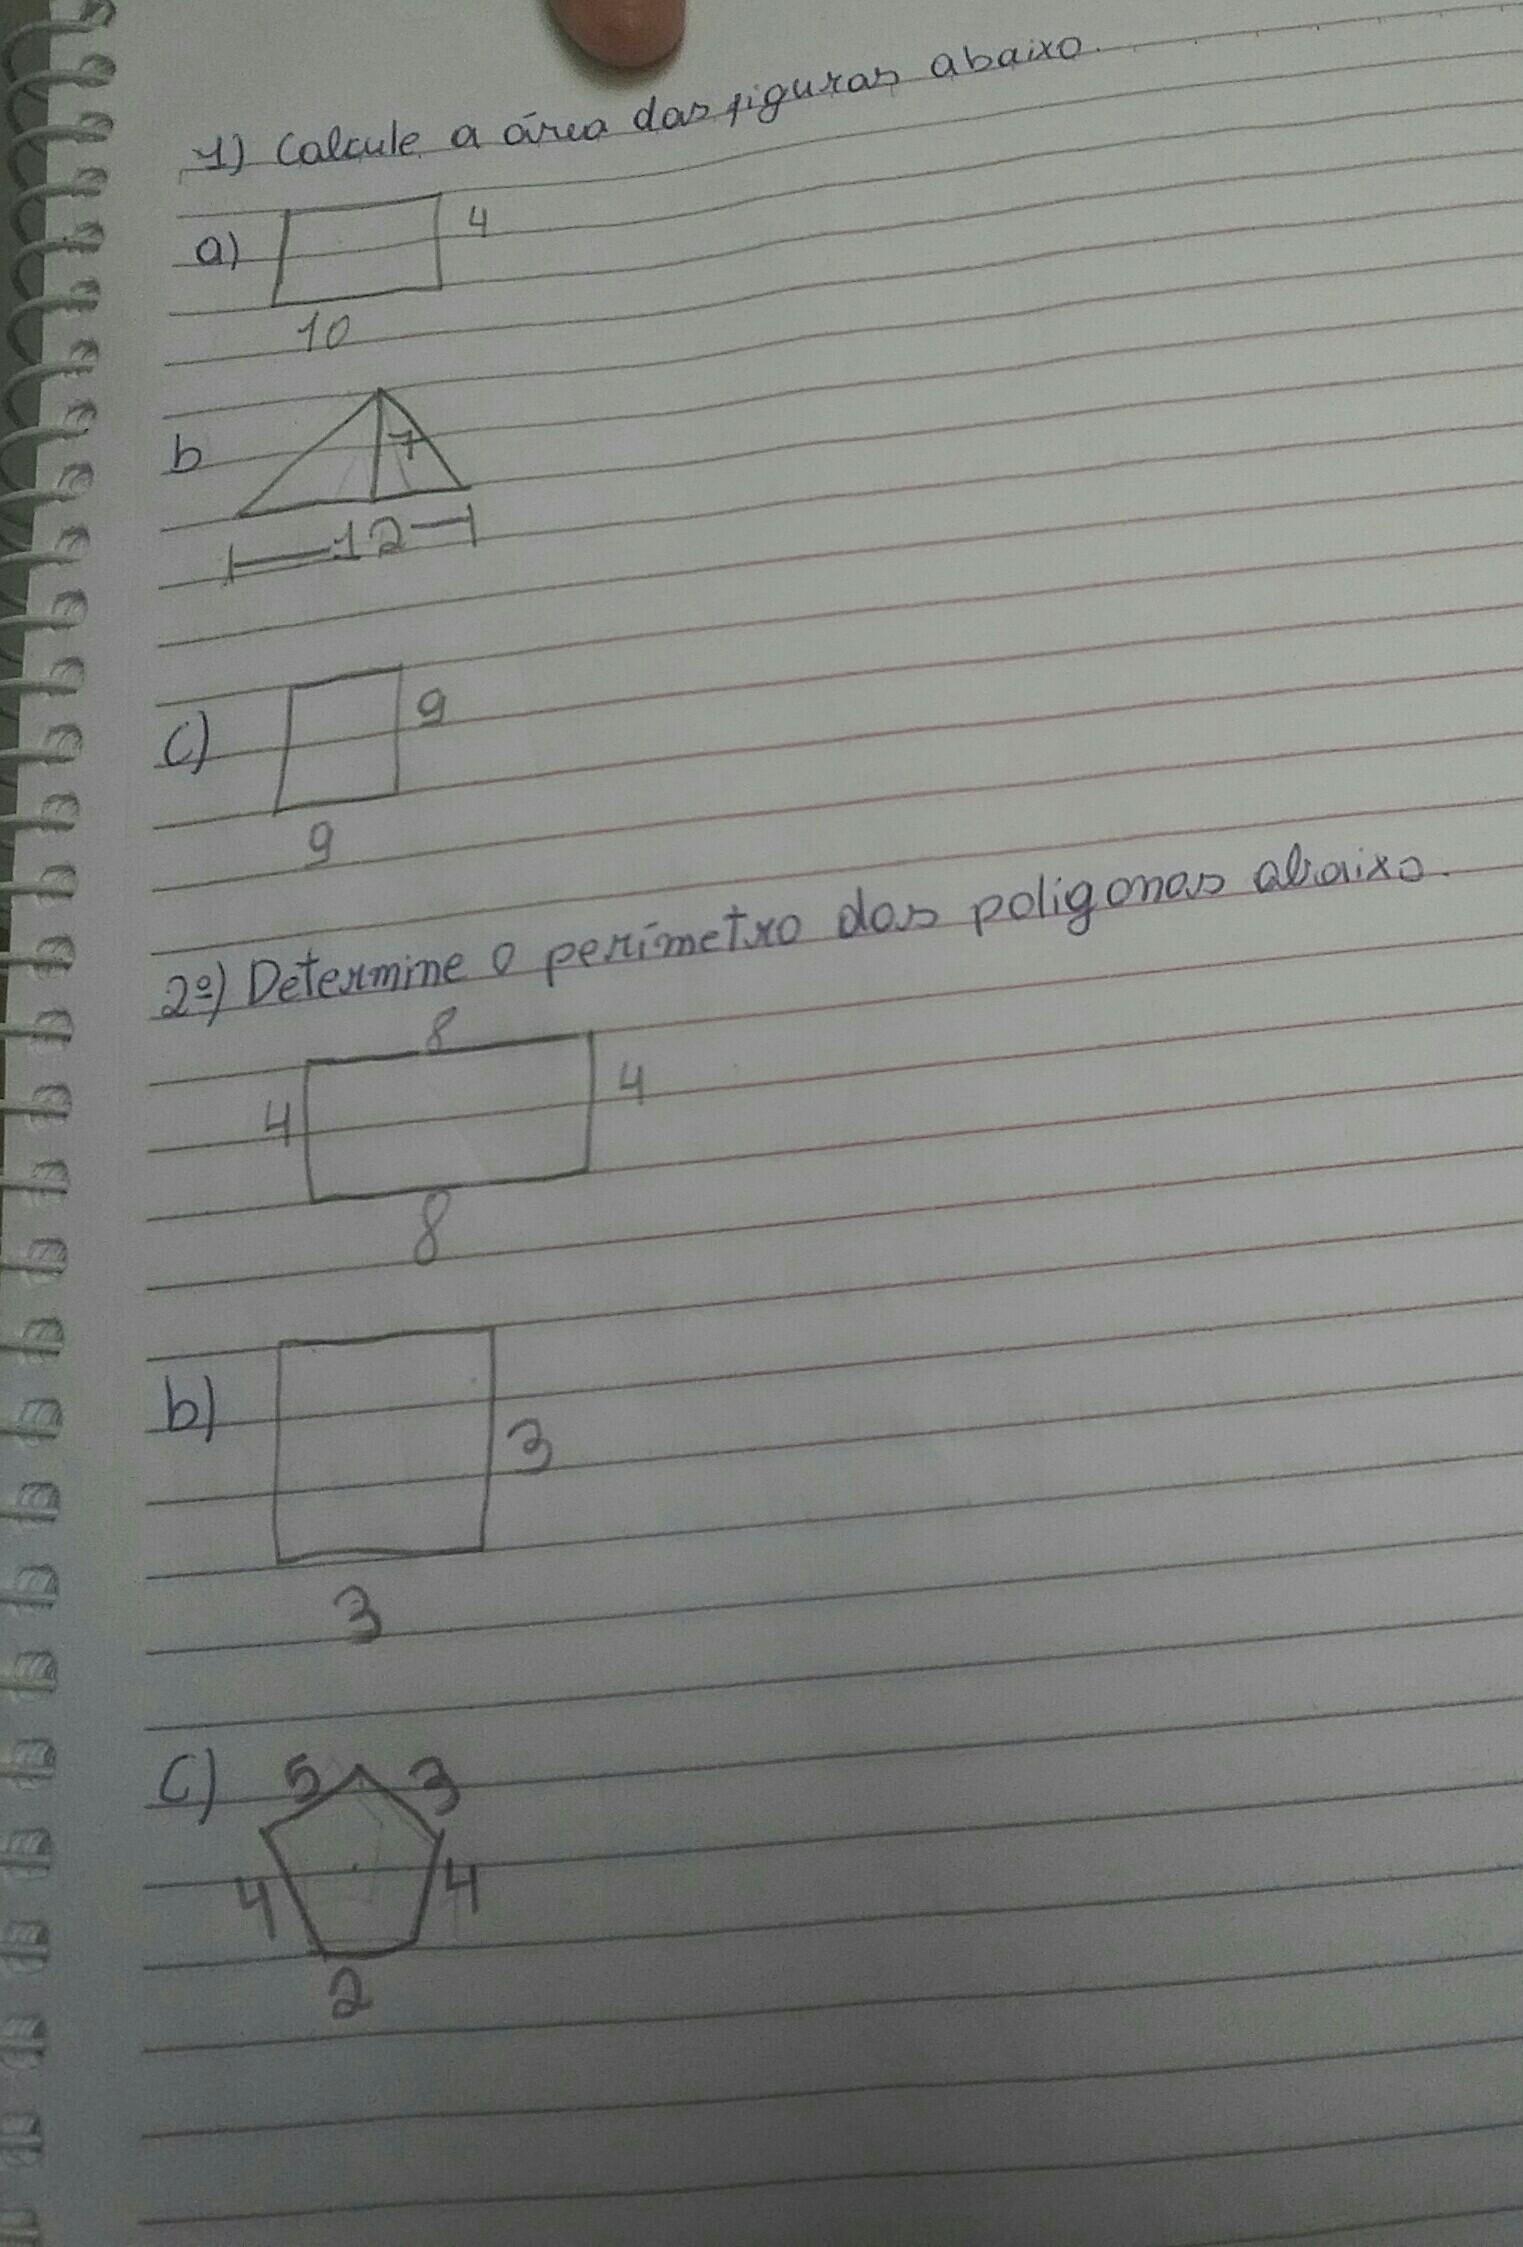 1) Calcule a área das figuras abaixo.
a)
4
10
b
7
12
c)
9
9
2º) Determine o perímetro dos poligonos abaixo.
8
4
4
8
b)
3
3
c)
5
3
4
4
2